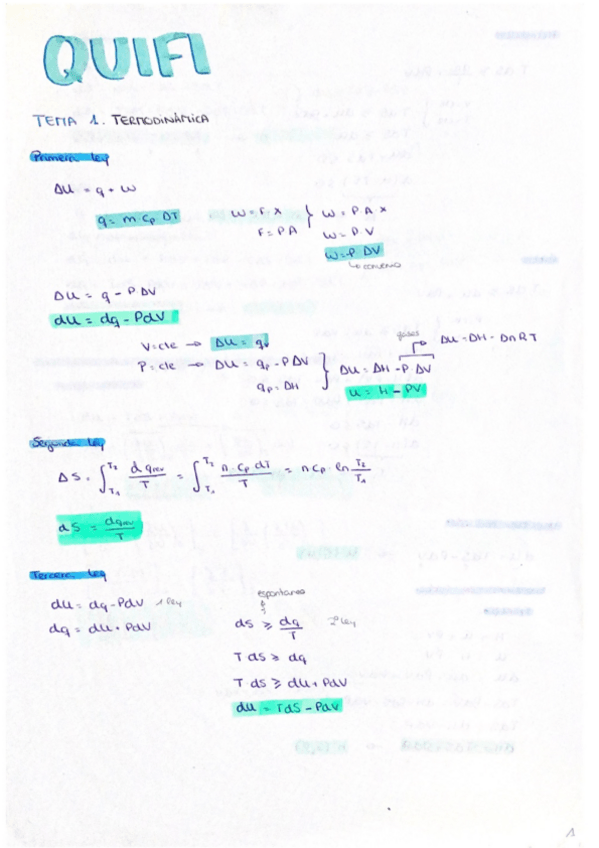 QUIFI
TEMA 1. TERMODINÁMICA
Primera ley
ΔU = q + W
q = m Cp ΔT
W = F · X
F = P A
W = P · A · X
W = P · V
W = -P ΔV
↳ convenio
ΔU = q - P ΔV
dU = dq - PdV
V = cte → ΔU = qv
P = cte → ΔU = qp - P ΔV
qp = ΔH
ΔU = ΔH - P ΔV
gases
ΔU = ΔH - ΔnRT
U = H - PV
Segunda ley
ΔS = ∫_{T1}^{T2} d qrev / T = ∫_{T1}^{T2} n · Cp dT / T = n Cp · ln T2/T1
dS = dqrev / T
Tercera ley
dU = dq - PdV 1ª ley
dq = dU + PdV
espontáneo
dS ≥ dq / T 2ª ley
T dS ≥ dq
T dS ≥ dU + PdV
dU = TdS - PdV
1